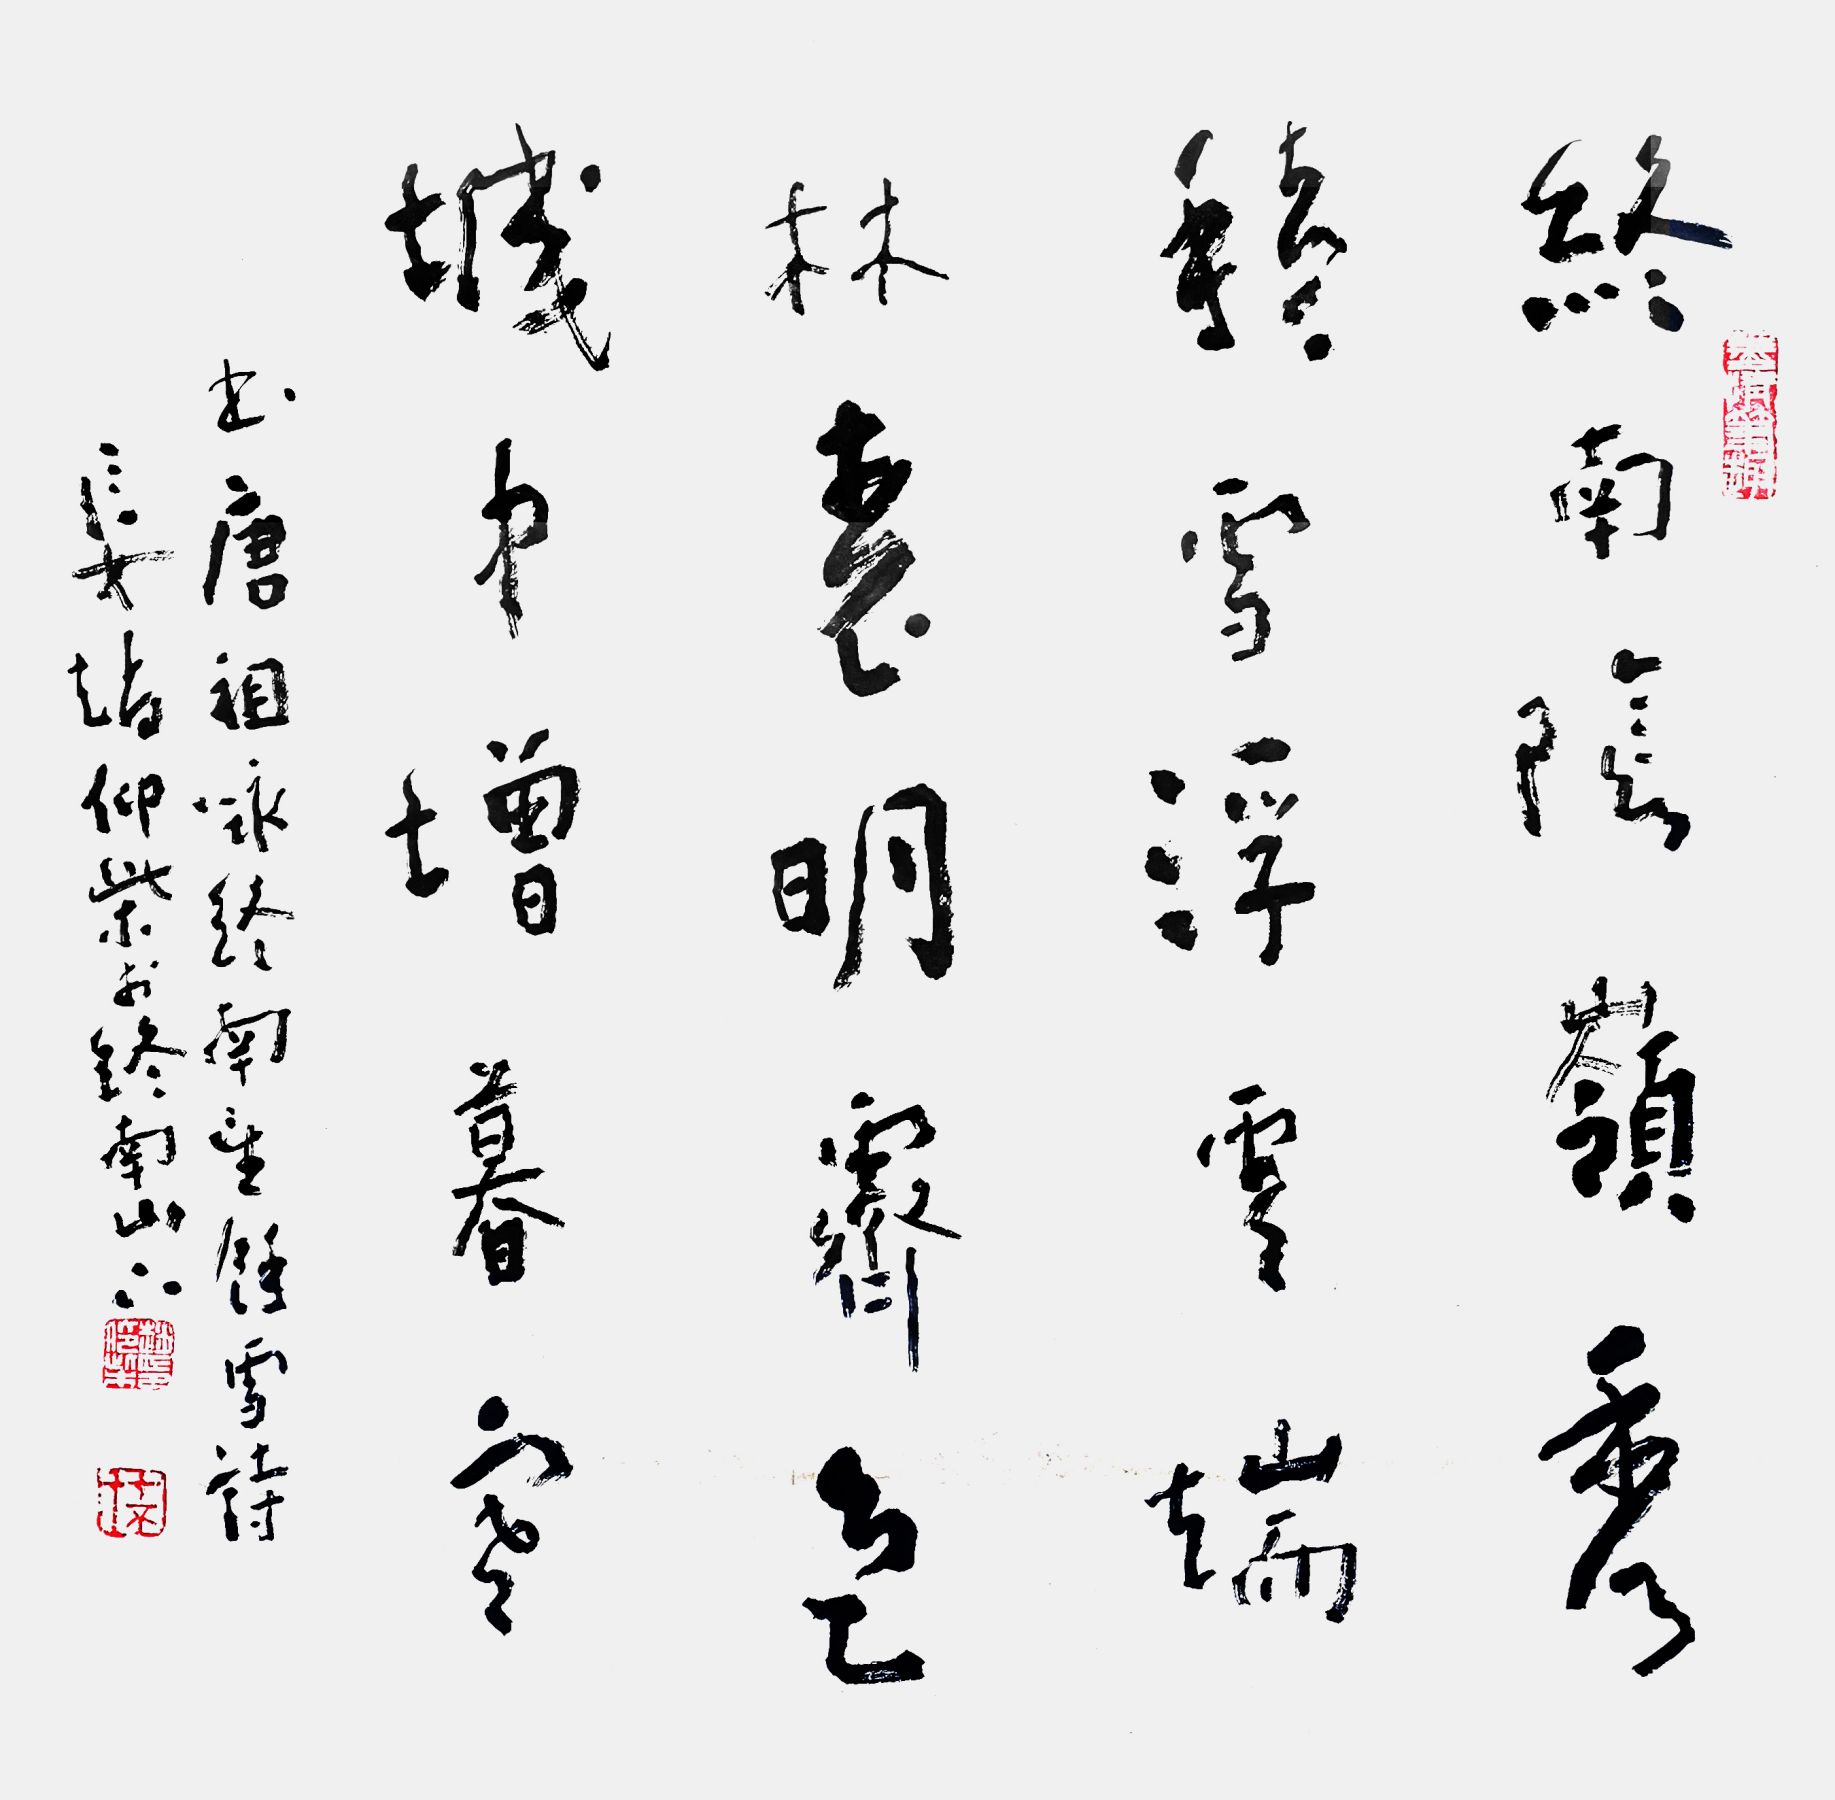 終南陰嶺秀
積雪浮雲端
林表明霽色
城中增暮寒
書唐祖咏終南望餘雪詩
長安趙仰柴於終南山下